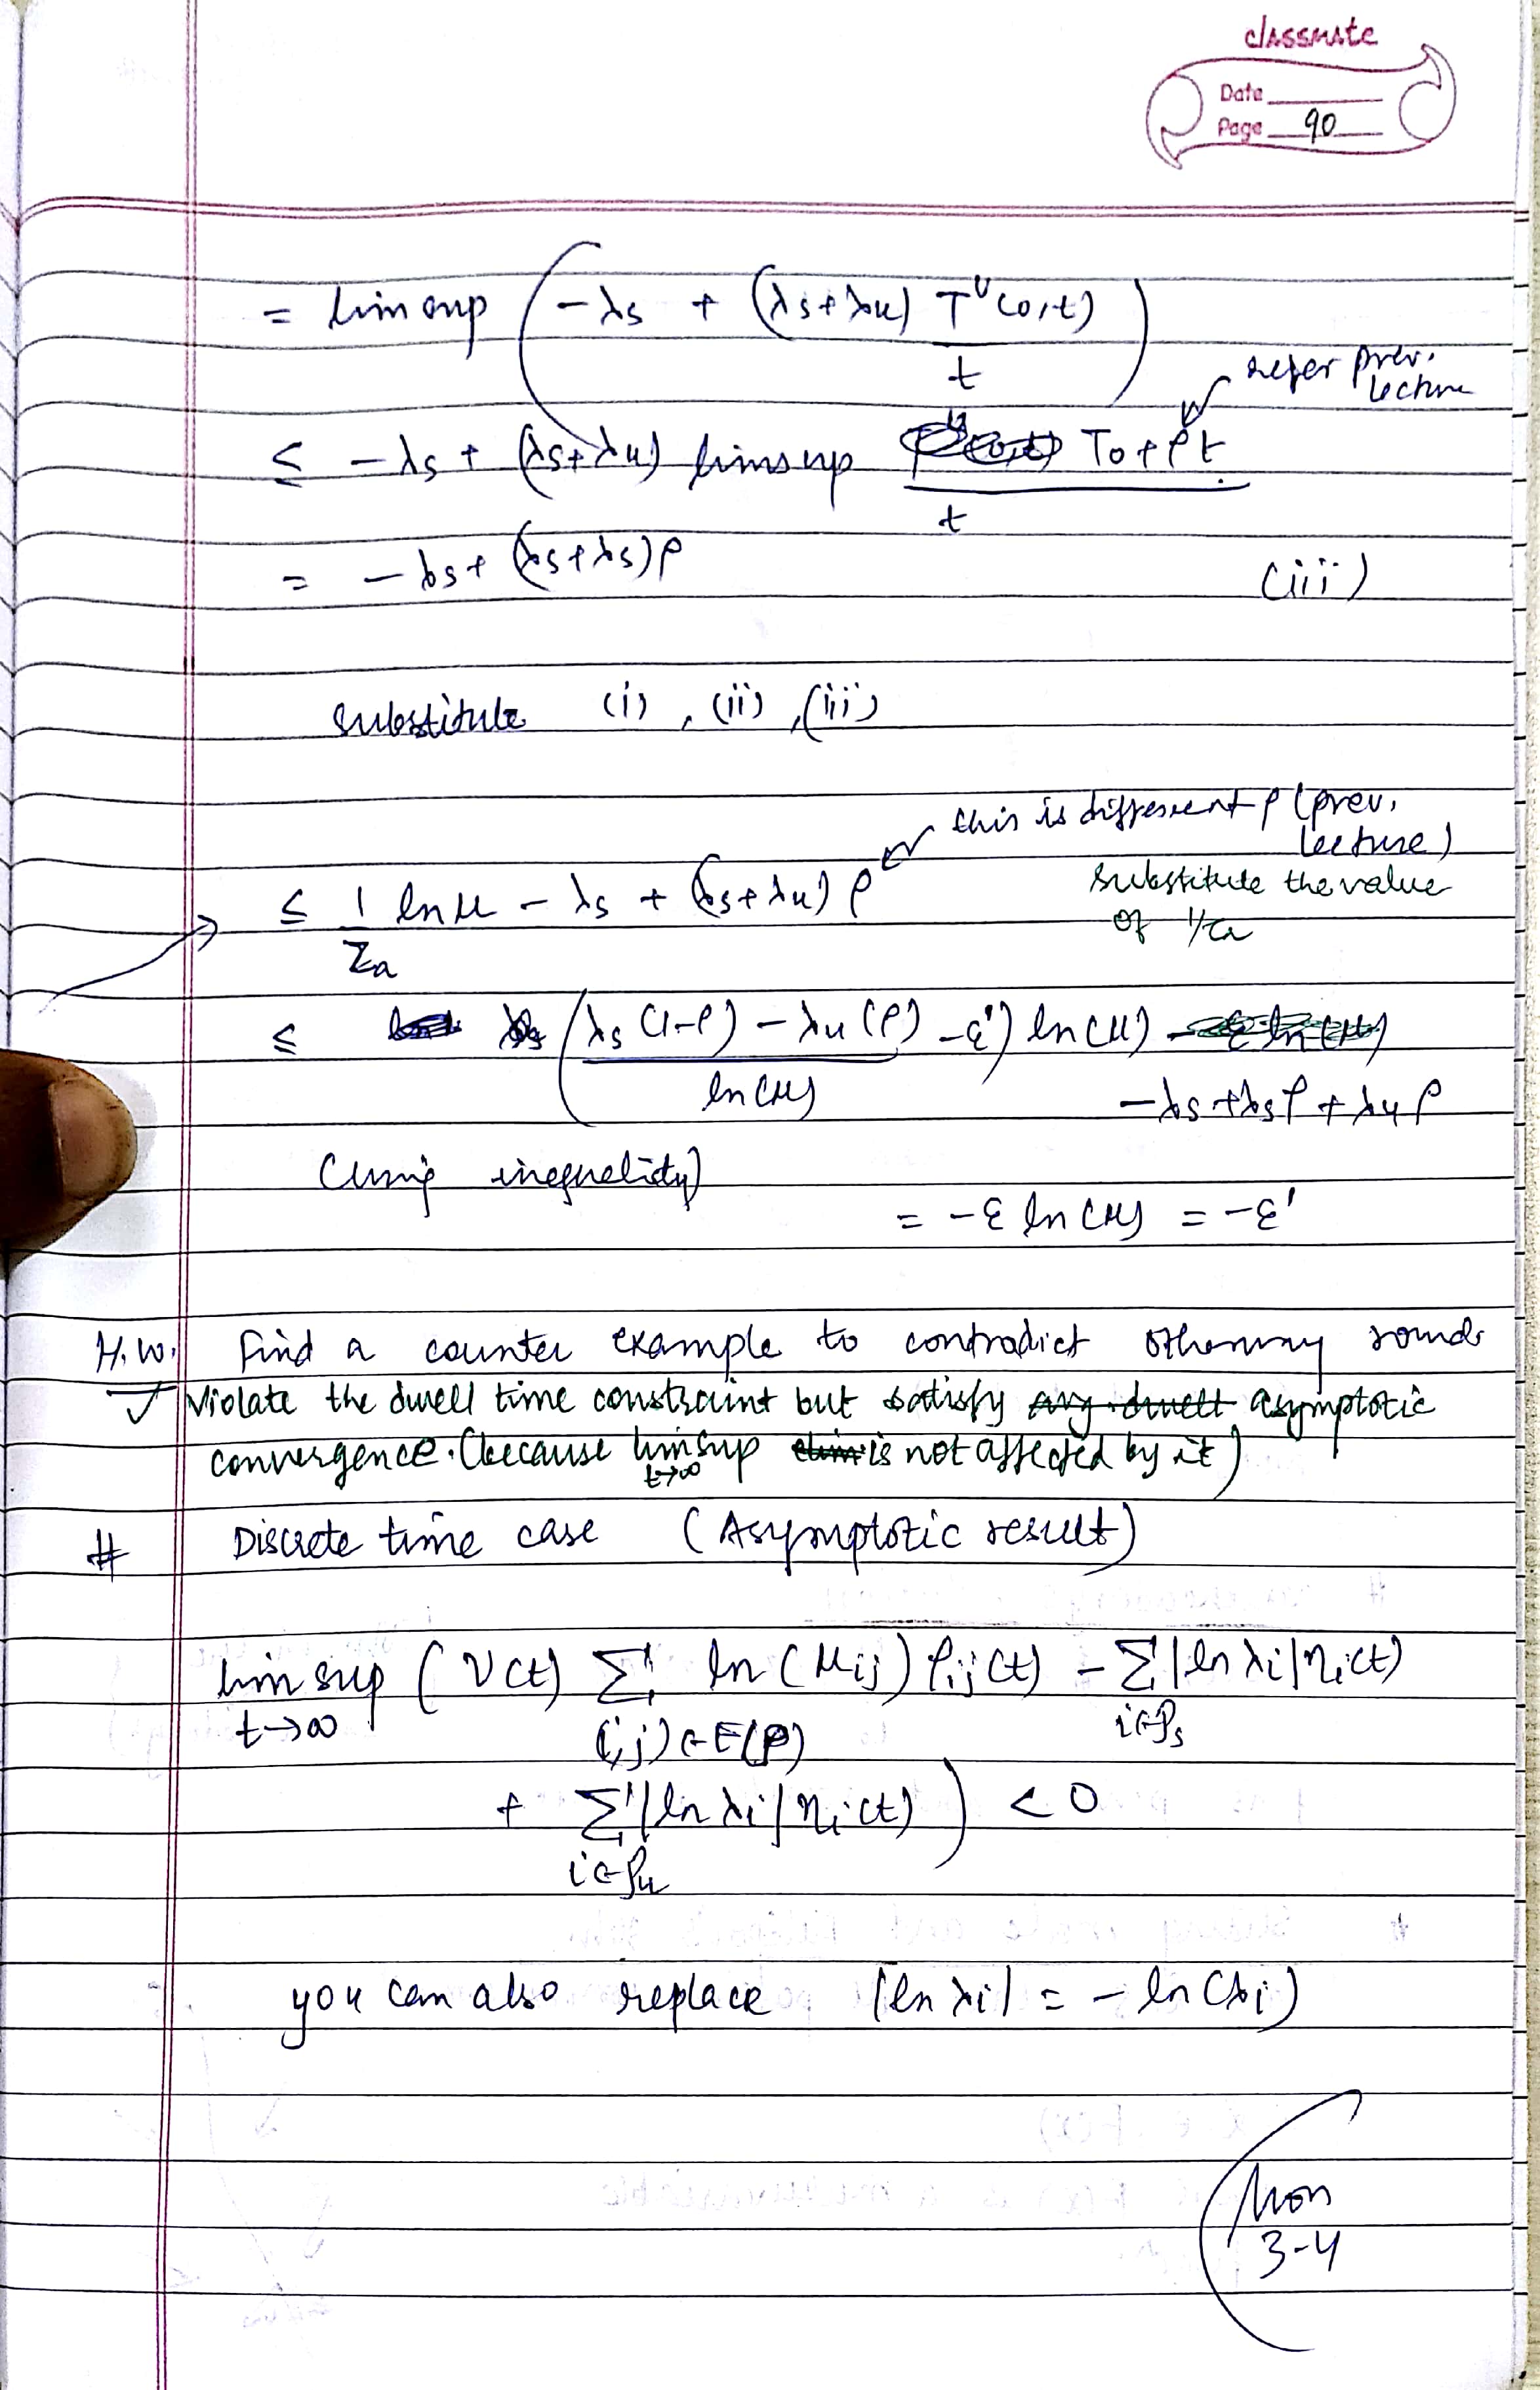 classmate
Date
Page 90
= lim sup ( -λs + (λs+λu) T^u(0,t) / t )
refer prev. lecture
≤ -λs + (λs+λu) limsup T0+ρt / t
= -λs + (λs+λs)ρ (iii)
substitute (i), (ii), (iii)
this is different ρ (prev. lecture)
≤ 1/τa ln μ - λs + (λs+λu) ρ
substitute the value of 1/τa
≤ ( λs(1-ρ) - λu(ρ) / ln(μ) - ε' ) ln(μ)
- λs + λsρ + λuρ
(using inequality)
= -ε ln(μ) = -ε'
H.W. Find a counter example to contradict otherway round
Violate the dwell time constraint but satisfy avg. dwell asymptotic
convergence. (because lim sup t→∞ is not affected by it)
# Discrete time case (Asymptotic result)
lim sup t→∞ ( ν(t) Σ (i,j)∈E(P) ln(μij) ρij(t) - Σ i∈Ps |ln λi| ηi(t)
+ Σ i∈Pu |ln λi| ηi(t) ) < 0
you can also replace |ln λi| = - ln(λi)
Mon
3-4